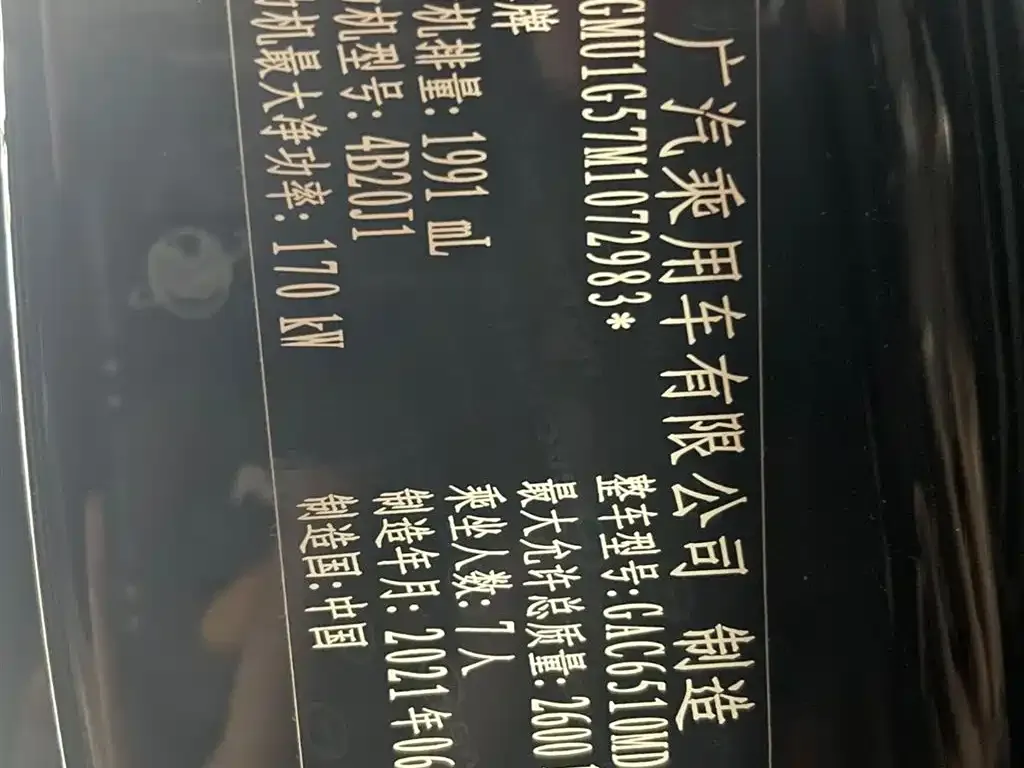 广汽乘用车有限公司 制造
GMU1G57M1072983*
整车型号:GAC6510MD
牌
最大允许总质量:2600
机排量:1991 mL
乘坐人数:7人
机型号:4B20J1
制造年月:2021年06
机最大净功率:170 kW
制造国:中国